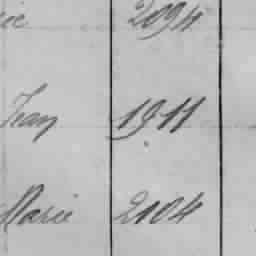 2094
Jean 1911
Marie 2104